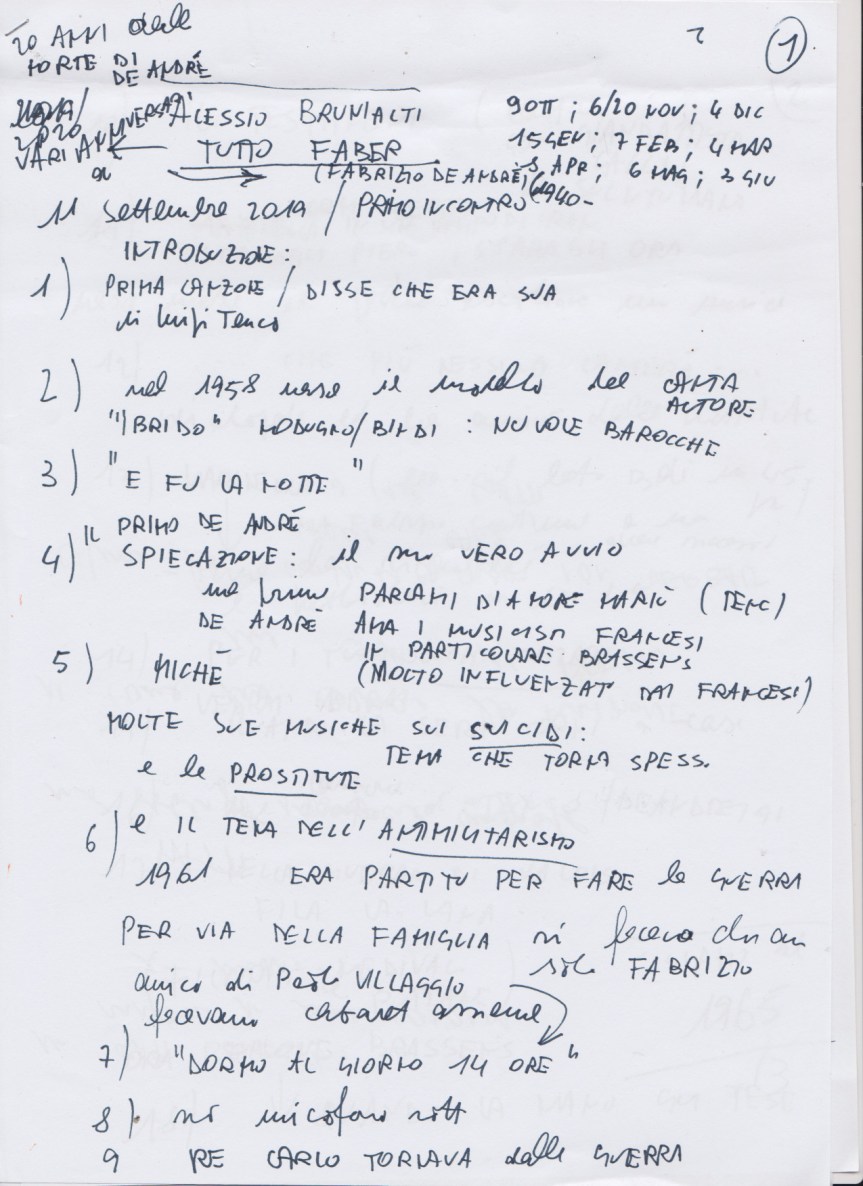 20 ANNI dalla
MORTE DI
DE ANDRÉ
1
2020
VARI ANNIVERSARI
ALESSIO BRUNIALTI
TUTTO FABER
(FABRIZIO DE ANDRÉ) (1940-
9 OTT ; 6/20 NOV ; 4 DIC
15 GEN ; 7 FEB ; 4 MAR
8 APR ; 6 MAG ; 3 GIU
11 Settembre 2019 / PRIMO INCONTRO
INTRODUZIONE :
1) PRIMA CANZONE / DISSE CHE ERA SUA
di Luigi Tenco
2) nel 1958 nasce il modello del CANTA
AUTORE
"IBRIDO" MODUGNO/BINDI : NUVOLE BAROCCHE
3) "E FU LA NOTTE"
IL PRIMO DE ANDRÉ
4) SPIEGAZIONE : il suo VERO AVVIO
PARLAMI D'AMORE MARIÙ (TENC)
DE ANDRÉ AMA I MUSICISTI FRANCESI
IN PARTICOLARE BRASSENS
5) MICHE (MOLTO INFLUENZAT DAI FRANCESI)
MOLTE SUE MUSICHE SUI SUICIDI :
TEMA CHE TORNA SPESS.
e le PROSTITUTE
6) e IL TEMA DELL' ANTIMILITARISMO
1961 ERA PARTITO PER FARE la GUERRA
PER VIA DELLA FAMIGLIA si faceva chiamar
solo FABRIZIO
amico di Paolo VILLAGGIO
facevano cabaret assieme
7) "DORMO AL GIORNO 14 ORE"
8) microfono rott
9 RE CARLO TORNAVA dalla GUERRA